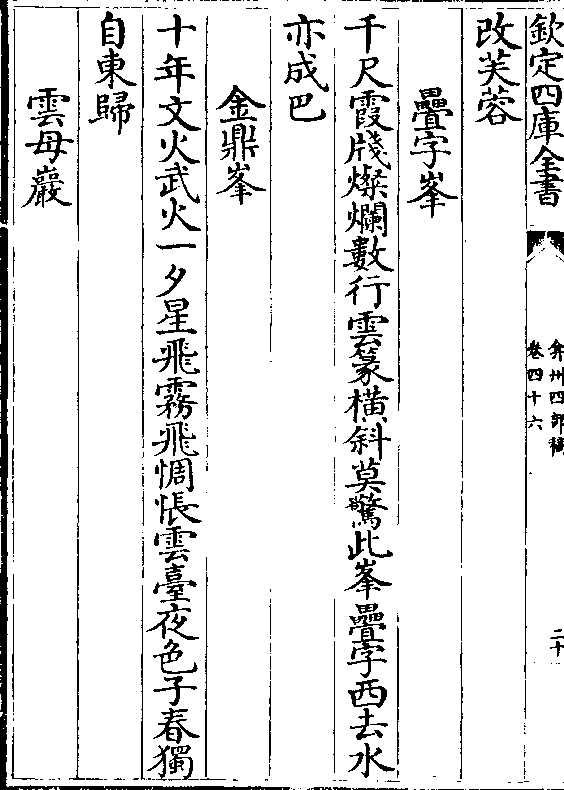 欽定四庫全書
弇州四部稿
卷四十六
二十
改芙蓉
疊字峯
千尺霞牋燦爛數行雲篆橫斜莫驚此峯疊字西去水
亦成巴
金鼎峯
十年文火武火一夕星飛霧飛惆悵雲臺夜色子春獨
自東歸
雲母巖